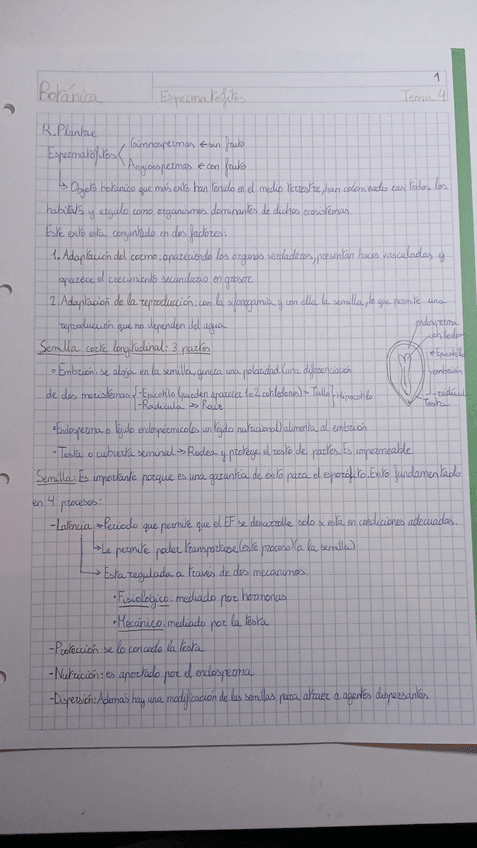 1
Botánica Espermatófitos Tema 4
R. Plantae
Espermatófitos Gimnospermas ← sin fruto
Angiospermas ← con fruto
↳ Objeto botánico que más éxito han tenido en el medio terrestre, han colonizado casi todos los
hábitats y erguido como organismos dominantes de dichos ecosistemas.
Este éxito está conjuntado en dos factores:
1. Adaptación del cormo, apareciendo los órganos verdaderos, presentan haces vasculados y
aparece el crecimiento secundario en grosor.
2. Adaptación de la reproducción: con la sifonogamia y con ella la semilla, lo que permite una
reproducción que no dependen del agua
Semilla corte longitudinal: 3 partes
endosperma
cotiledón
Epicótilo
embrión
radícula
Testa
• Embrión: se aloja en la semilla, genera una polaridad (una diferenciación
de dos meristemos -Epicótilo (pueden aparecer 1 o 2 cotiledones) = Tallo Hipocótilo
-Radícula → Raíz
• Endosperma o tejido endospérmico (es un tejido nutricional) alimenta al embrión
• Testa o cubierta seminal → Rodea y protege el resto de partes. Es impermeable
Semilla: Es importante porque es una garantía de éxito para el esporófito. Éxito fundamentado
en 4 procesos:
-Latencia → Periodo que permite que el EF se desarrolle solo si está en condiciones adecuadas.
↳ Le permite poder transportarse (este proceso) (a la semilla)
→ Está regulada a través de dos mecanismos:
• Fisiológico: mediado por hormonas
• Mecánico: mediado por la testa
-Protección: se lo concede la testa
-Nutrición: es aportado por el endosperma
-Dispersión: Además hay una modificación de las semillas para atraer a agentes dispersantes